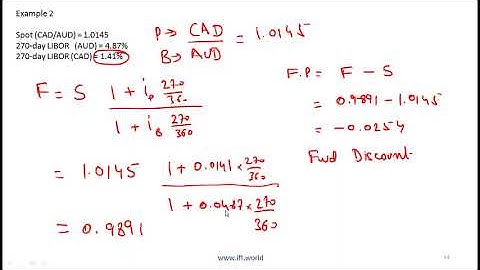 Example 2
Spot (CAD/AUD) = 1.0145
270-day LIBOR (AUD) = 4.87%
270-day LIBOR (CAD) = 1.41%
P → CAD
B → AUD
= 1.0145
F = S
1 + iP 270/360
1 + iB 270/360
= 1.0145
1 + 0.0141 × 270/360
1 + 0.0487 × 270/360
= 0.9891
F.P = F - S
= 0.9891 - 1.0145
= -0.0254
Fwd Discount
www.ift.world